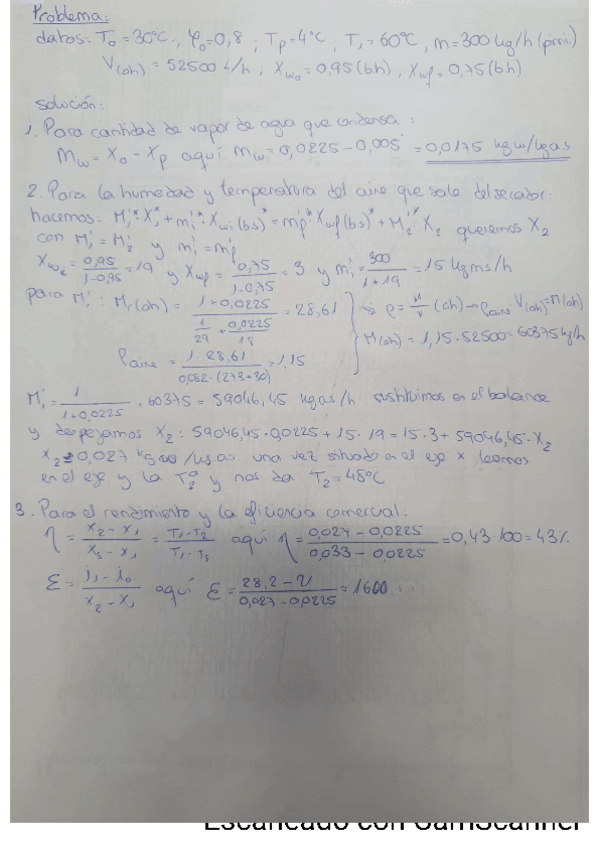 Problema:
datos: T₀ = 30ºC., φ₀=0,8 ; Tp=4ºC ; T₁=60ºC, m=300 kg/h (pimi.)
V(ah) = 52500 L/h ; Xw₀=0,95(bh), Xwf=0,75(bh)
Solución:
1. Para cantidad de vapor de agua que condensa:
Mw = X₀ - Xp aquí Mw = 0,0225 - 0,005 = 0,0175 kgw/kgas
2. Para la humedad y temperatura del aire que sale del secador:
hacemos: M₁'* X₁* + m₁'* Xw₁(bs)* = mp'* Xwf(bs)* + M₂'* X₂ queremos X₂
con M₁' = M₂' y m₁' = mp'
= 0,95/1-0,95 = 19 y Xwf = 0,75/1-0,75 = 3 y m₁' = 300/1+19 = 15 kgms/h
para M₁': Mr(ah) = 1+0,0225 / 1/29 + 0,0225/18 = 28,61 (ah) → ρaire V(ah) = M(ah)
M(ah) = 1,15·52500=60375 kg/h
ρaire = 1·28,61 / 0,082·(273+30) = 1,15
M₁' = 1/1+0,0225 · 60375 = 59046,45 kgas/h sustituimos en el balance
y despejamos X₂: 59046,45·0,0225 + 15·19 = 15·3 + 59046,45·X₂
X₂ = 0,027 /kgas. una vez situado en el eje x leemos
en el eje y la T₂ª y nos da T₂=48ºC
3. Para el rendimiento y la eficiencia comercial:
η = X₂-X₁/Xs-X₁ = T₁-T₂/T₁-Ts aquí η = 0,027-0,0225/0,033-0,0225 = 0,43·100 = 43%
ε = j₁-j₀/X₂-X₁ aquí ε = 28,2-/0,027-0,0225 = 1600...
Escaneado con CamScanner